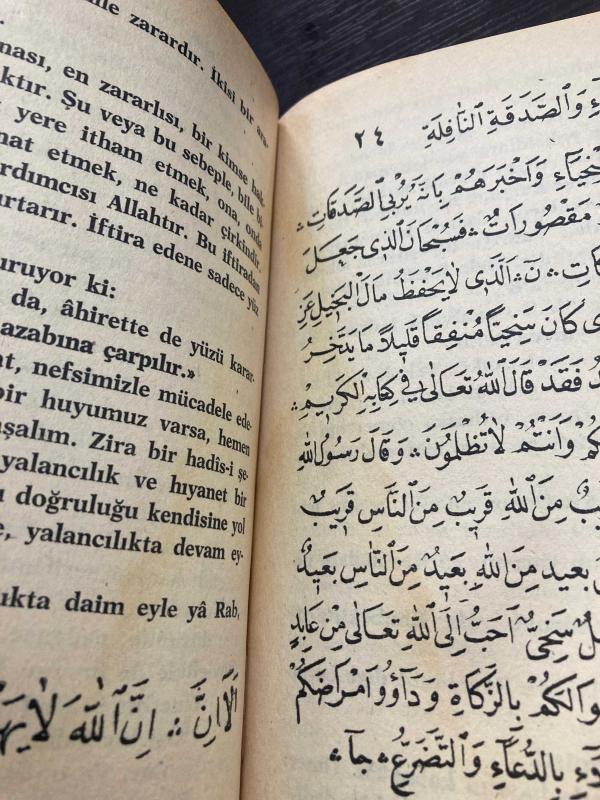 ile zarardır. İkisi bir ara-
ması, en zararlısı, bir kimse hak-
ktır. Şu veya bu sebeple, bile bi
yere itham etmek, ona, onda
nat etmek, ne kadar çirkindir.
rdımcısı Allahtır. Bu iftiradan
urtarır. İftira edene sadece yüz
uruyor ki:
da, âhirette de yüzü karar-
azabına çarpılır.»
at, nefsimizle mücadele ede-
bir huyumuz varsa, hemen
şalım. Zira bir hadîs-i şe-
yalancılık ve hıyanet bir
doğruluğu kendisine yol
e, yalancılıkta devam ey-
ukta daim eyle yâ Rab,
اَلَا اِنَّ ؞ اِنَّ اللّٰهَ لَا يَهْ
٢٤
وَالصَّدَقَةِ النَّافِلَةِ
وَاَخْبَرَهُمْ بِاَنَّهُ يُرْبِي الصَّدَقَاتِ ؞
مَقْصُورَاتٌ ؞ فَسُبْحَانَ الَّذِي جَعَلَ
اَلَّذِي لَا يَحْفَظُ مَالَ الْبَخِيلِ عَنْ
كَانَ سَخِيًّا مُنْفِقًا قَلِيلًا مَا يَدَّخِرُ
فَقَدْ قَالَ اللّٰهُ تَعَالٰى فِي كِتَابِهِ الْكَرِيمِ ؞
وَاَنْتُمْ لَا تُظْلَمُونَ ؞ وَقَالَ رَسُولُ اللّٰهِ
مِنَ اللّٰهِ قَرِيبٌ مِنَ النَّاسِ قَرِيبٌ
بَعِيدٌ مِنَ اللّٰهِ بَعِيدٌ مِنَ النَّاسِ بَعِيدٌ
سَخِيٌّ اَحَبُّ اِلَى اللّٰهِ تَعَالٰى مِنْ عَابِدٍ
وَالَكُمْ بِالزَّكَاةِ وَدَاوُوا مَرْضَاكُمْ
بِالدُّعَاءِ وَالتَّضَرُّعِ ؞ جا ؞